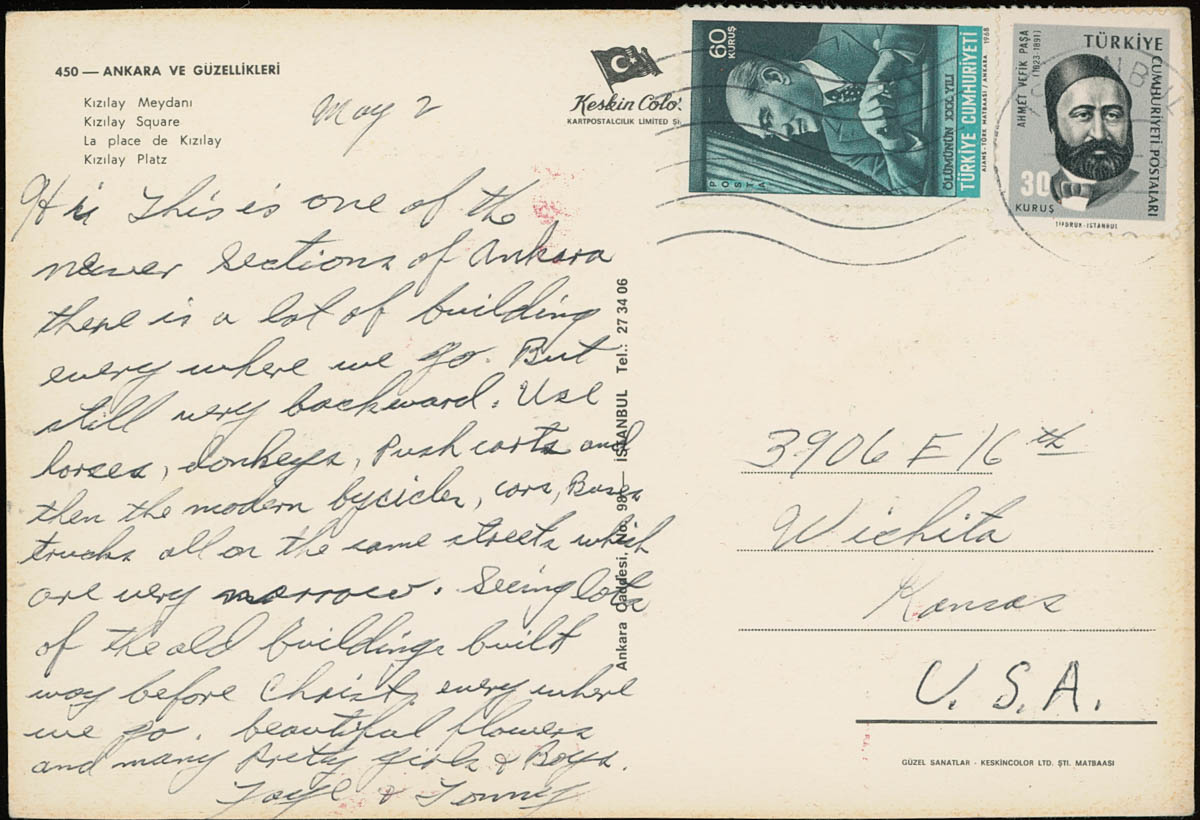 450 — ANKARA VE GÜZELLİKLERİ
Kızılay Meydanı
Kızılay Square
La place de Kızılay
Kızılay Platz
May 2
Keskin Colo
KARTPOSTALCILIK LIMITED Şİ
Hi This is one of the
newer sections of Ankara
there is a lot of building
every where we go. But
still very backward. Use
horses, donkeys, Push carts and
then the modern bycicles, cars, Buses
trucks all on the same streets which
are very narrow. Seeing lots
of the old buildings built
way before Christ, every where
we go. beautiful flowers
and many Pretty girls & Boys.
& Tommy
Ankara Caddesi, No. 98 — İSTANBUL Tel.: 27 34 06
60
KURUŞ
POSTA
ÖLÜMÜNÜN XXX. YILI
TÜRKİYE CUMHURİYETİ
AJANS-TÜRK MATBAASI / ANKARA 1968
TÜRKİYE
CUMHURİYETİ POSTALARI
AHMET VEFİK PAŞA
(1823-1891)
30
KURUŞ
TİFDRUK-İSTANBUL
3906 E 16th
Wichita
Kansas
U.S.A.
GÜZEL SANATLAR - KESKİNCOLOR LTD. ŞTI. MATBAASI